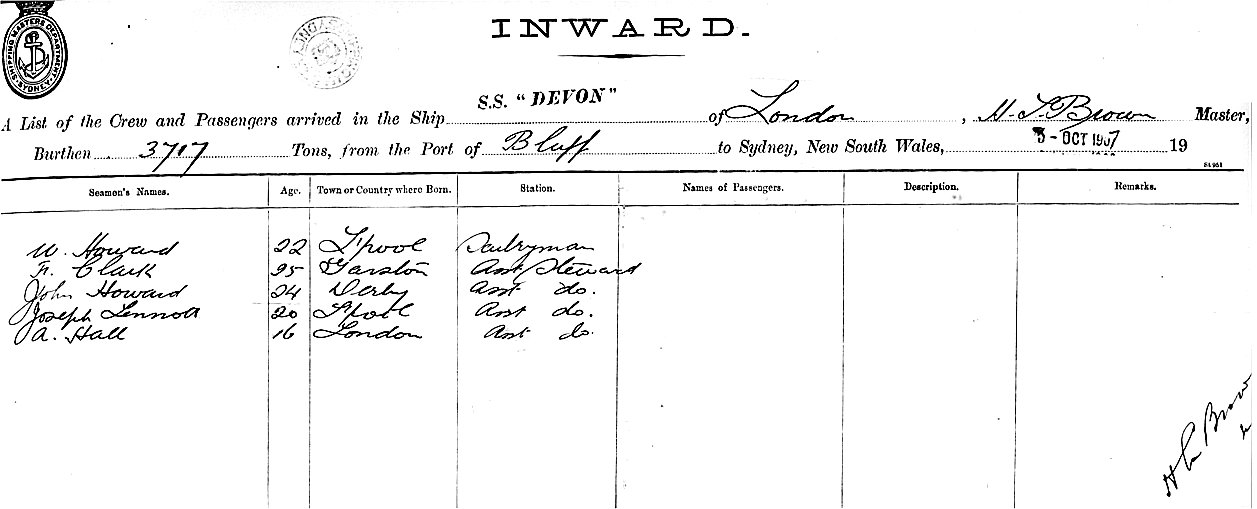 SHIPPING MASTERS DEPARTMENT. SYDNEY.
INWARD.
A List of the Crew and Passengers arrived in the Ship S.S. "DEVON" of London, Brown Master,
Burthen 3717 Tons, from the Port of Bluff to Sydney, New South Wales, 3-OCT 1907 19
Seamen's Names. Age. Town or Country where Born. Station. Names of Passengers. Description. Remarks.
W. Howard 22 L'pool
F. Clark 25 Garston Asst Steward
John Howard 24 Derby Asst do.
Joseph 20 L'pool Asst do.
A. Hall 16 London Asst do.